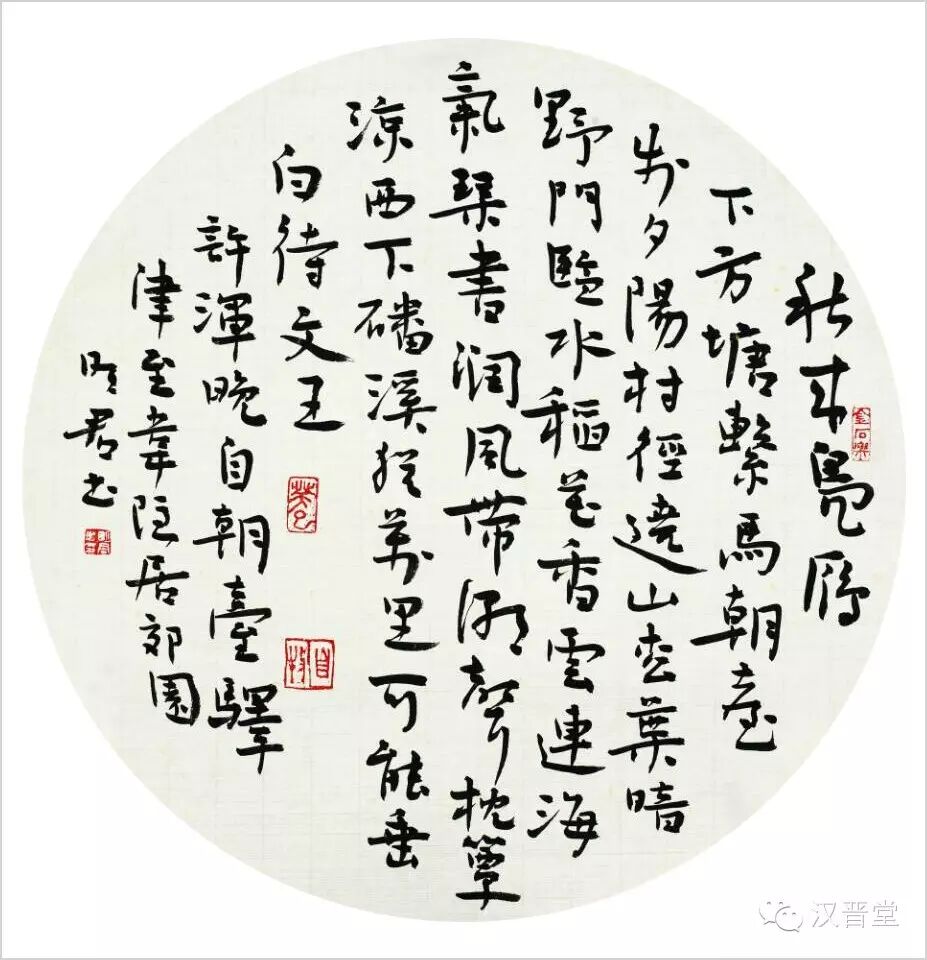 秋來鳧鴈
下方塘繫馬朝臺
步夕陽村徑遶山松葉暗
野門臨水稻花香雲連海
氣琴書润風帶潮聲枕簟
涼西下磻溪猶萬里可能垂
白待文王
許渾晚自朝臺驛
津至韋隐居郊園
明君书
汉晋堂